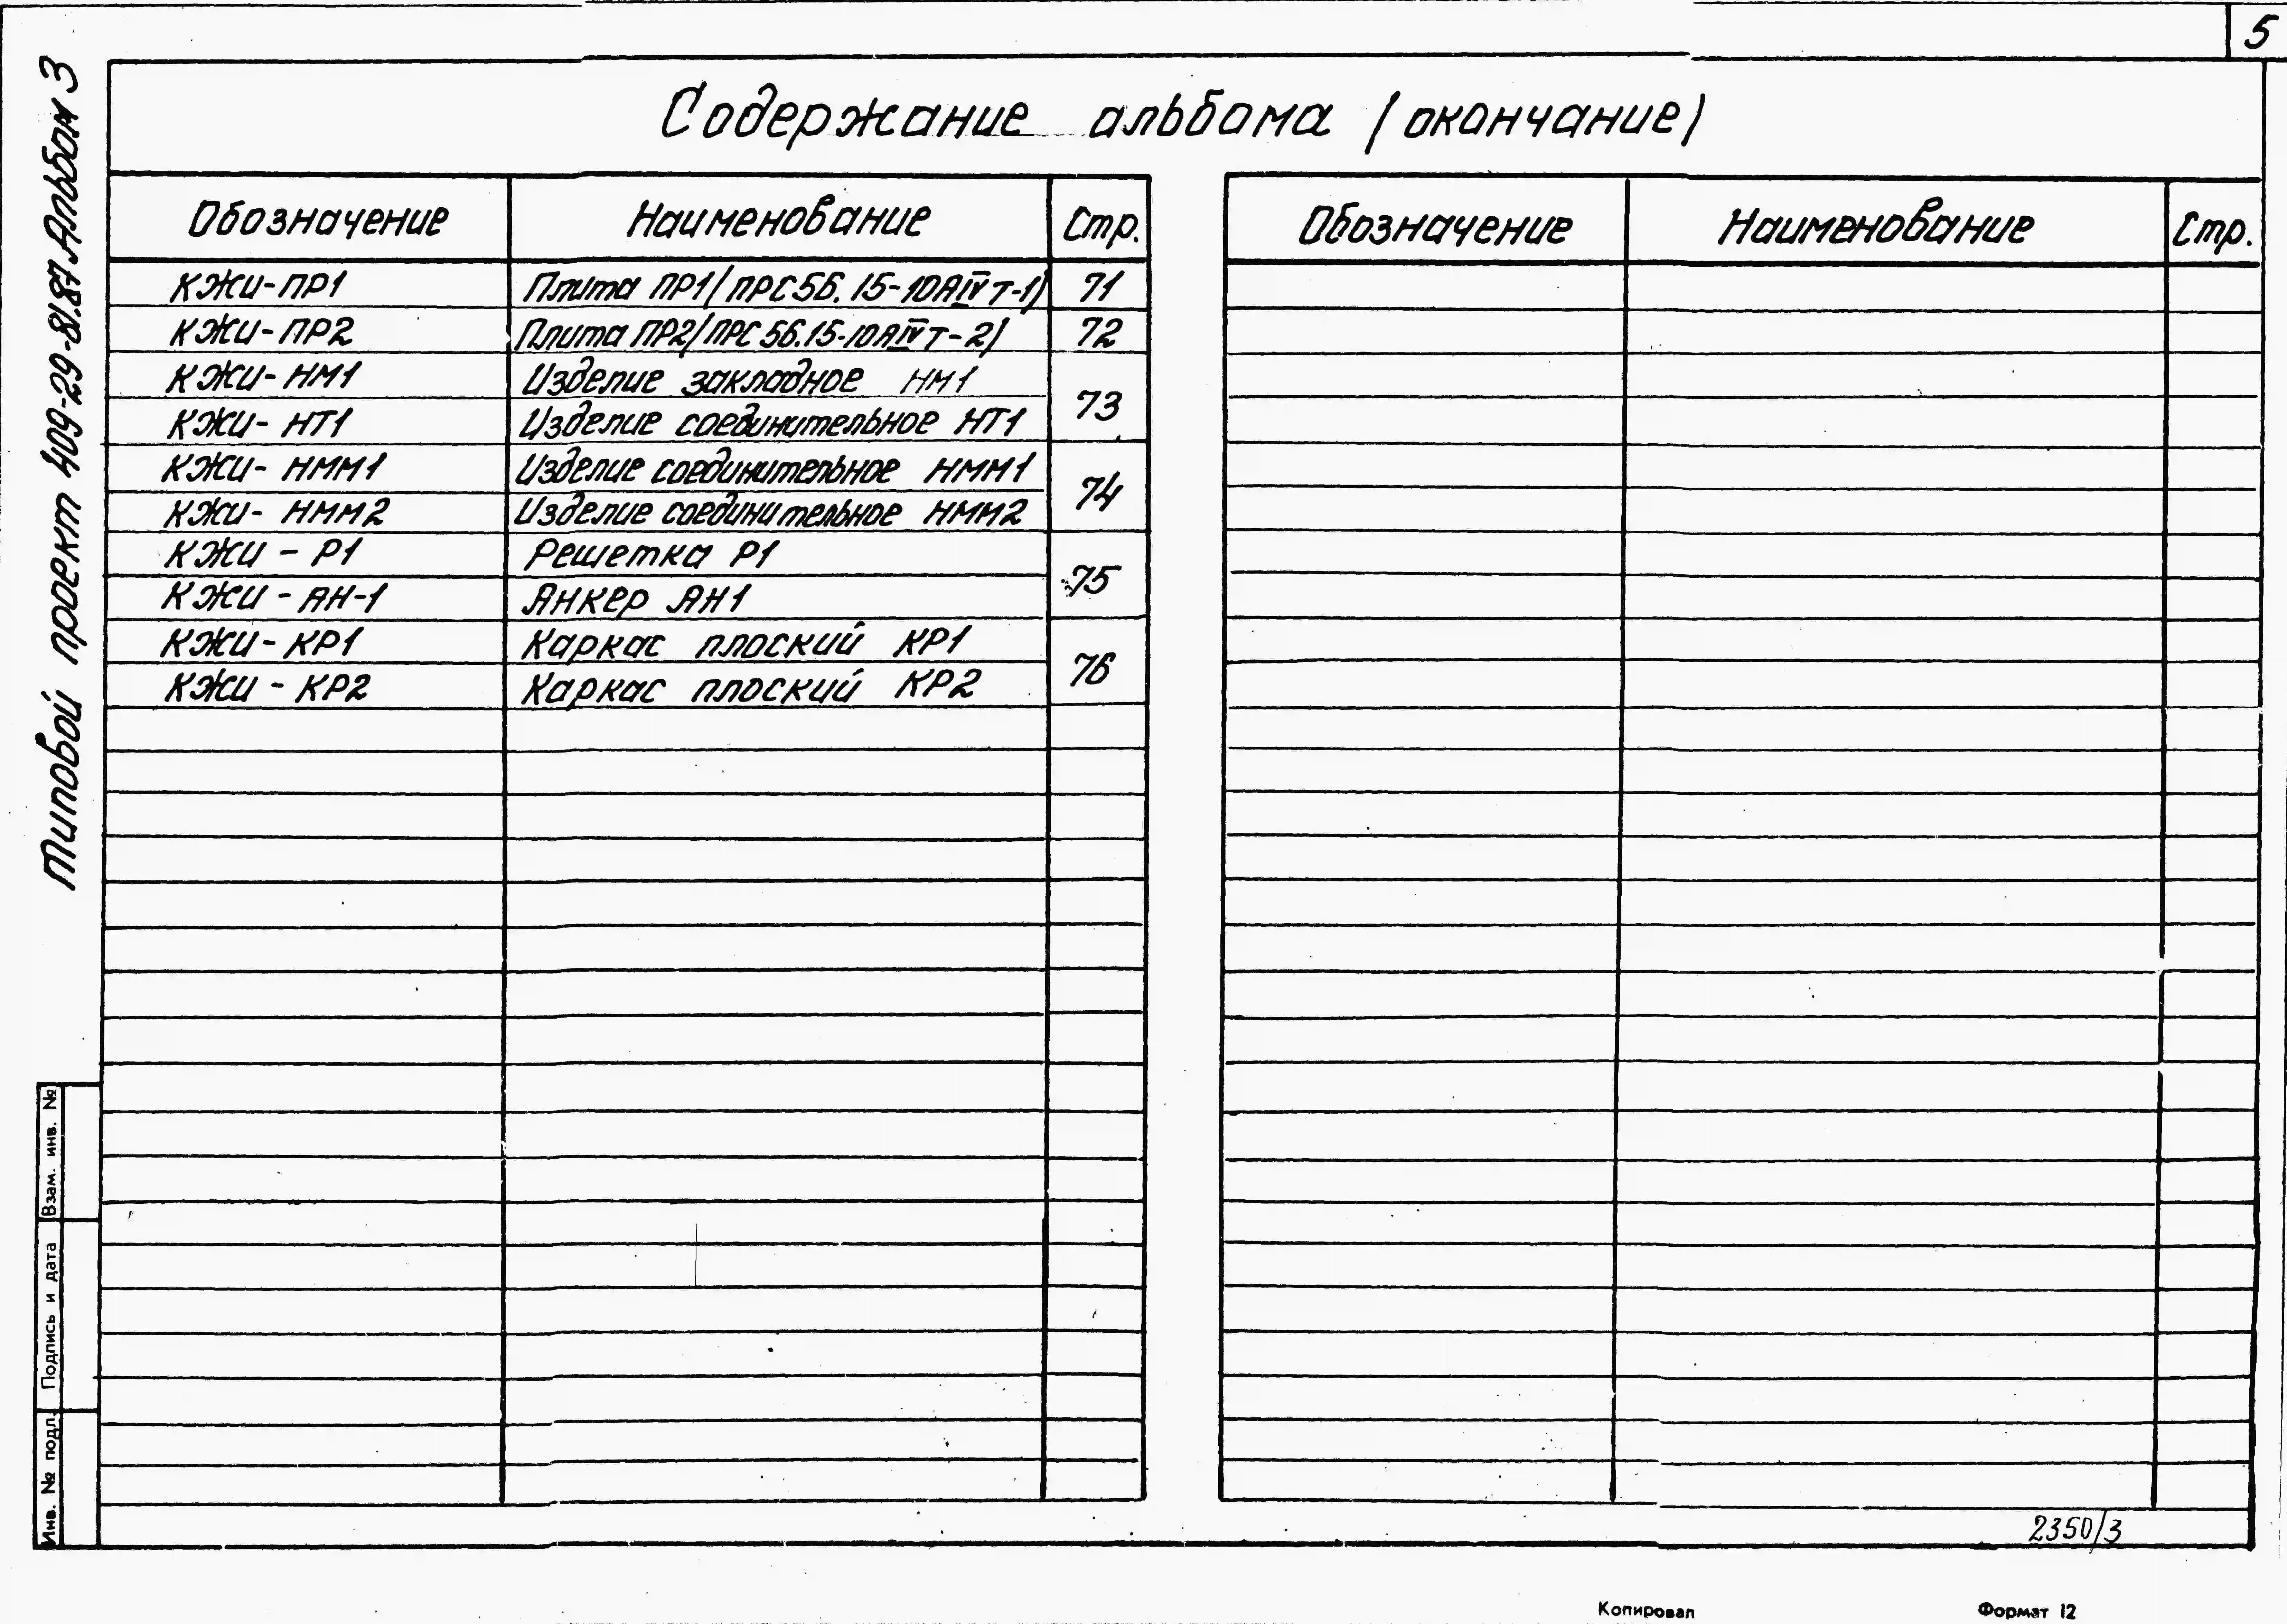 5
Типовой проект 409-29-81.87 Альбом 3
Содержание альбома (окончание)
Обозначение Наименование Стр. Обозначение Наименование Стр.
КЖИ-ПР1 Плита ПР1(ПРС56.15-10АIVт-1) 71
КЖИ-ПР2 Плита ПР2(ПРС56.15-10АIVт-2) 72
КЖИ-НМ1 Изделие закладное НМ1 73
КЖИ-НТ1 Изделие соединительное НТ1
КЖИ-НММ1 Изделие соединительное НММ1 74
КЖИ-НММ2 Изделие соединительное НММ2
КЖИ-Р1 Решетка Р1 75
КЖИ-АН-1 Анкер АН1
КЖИ-КР1 Каркас плоский КР1 76
КЖИ-КР2 Каркас плоский КР2
Взам. инв. №
Подпись и дата
Инв. № подл.
2350/3
Копировал Формат 12